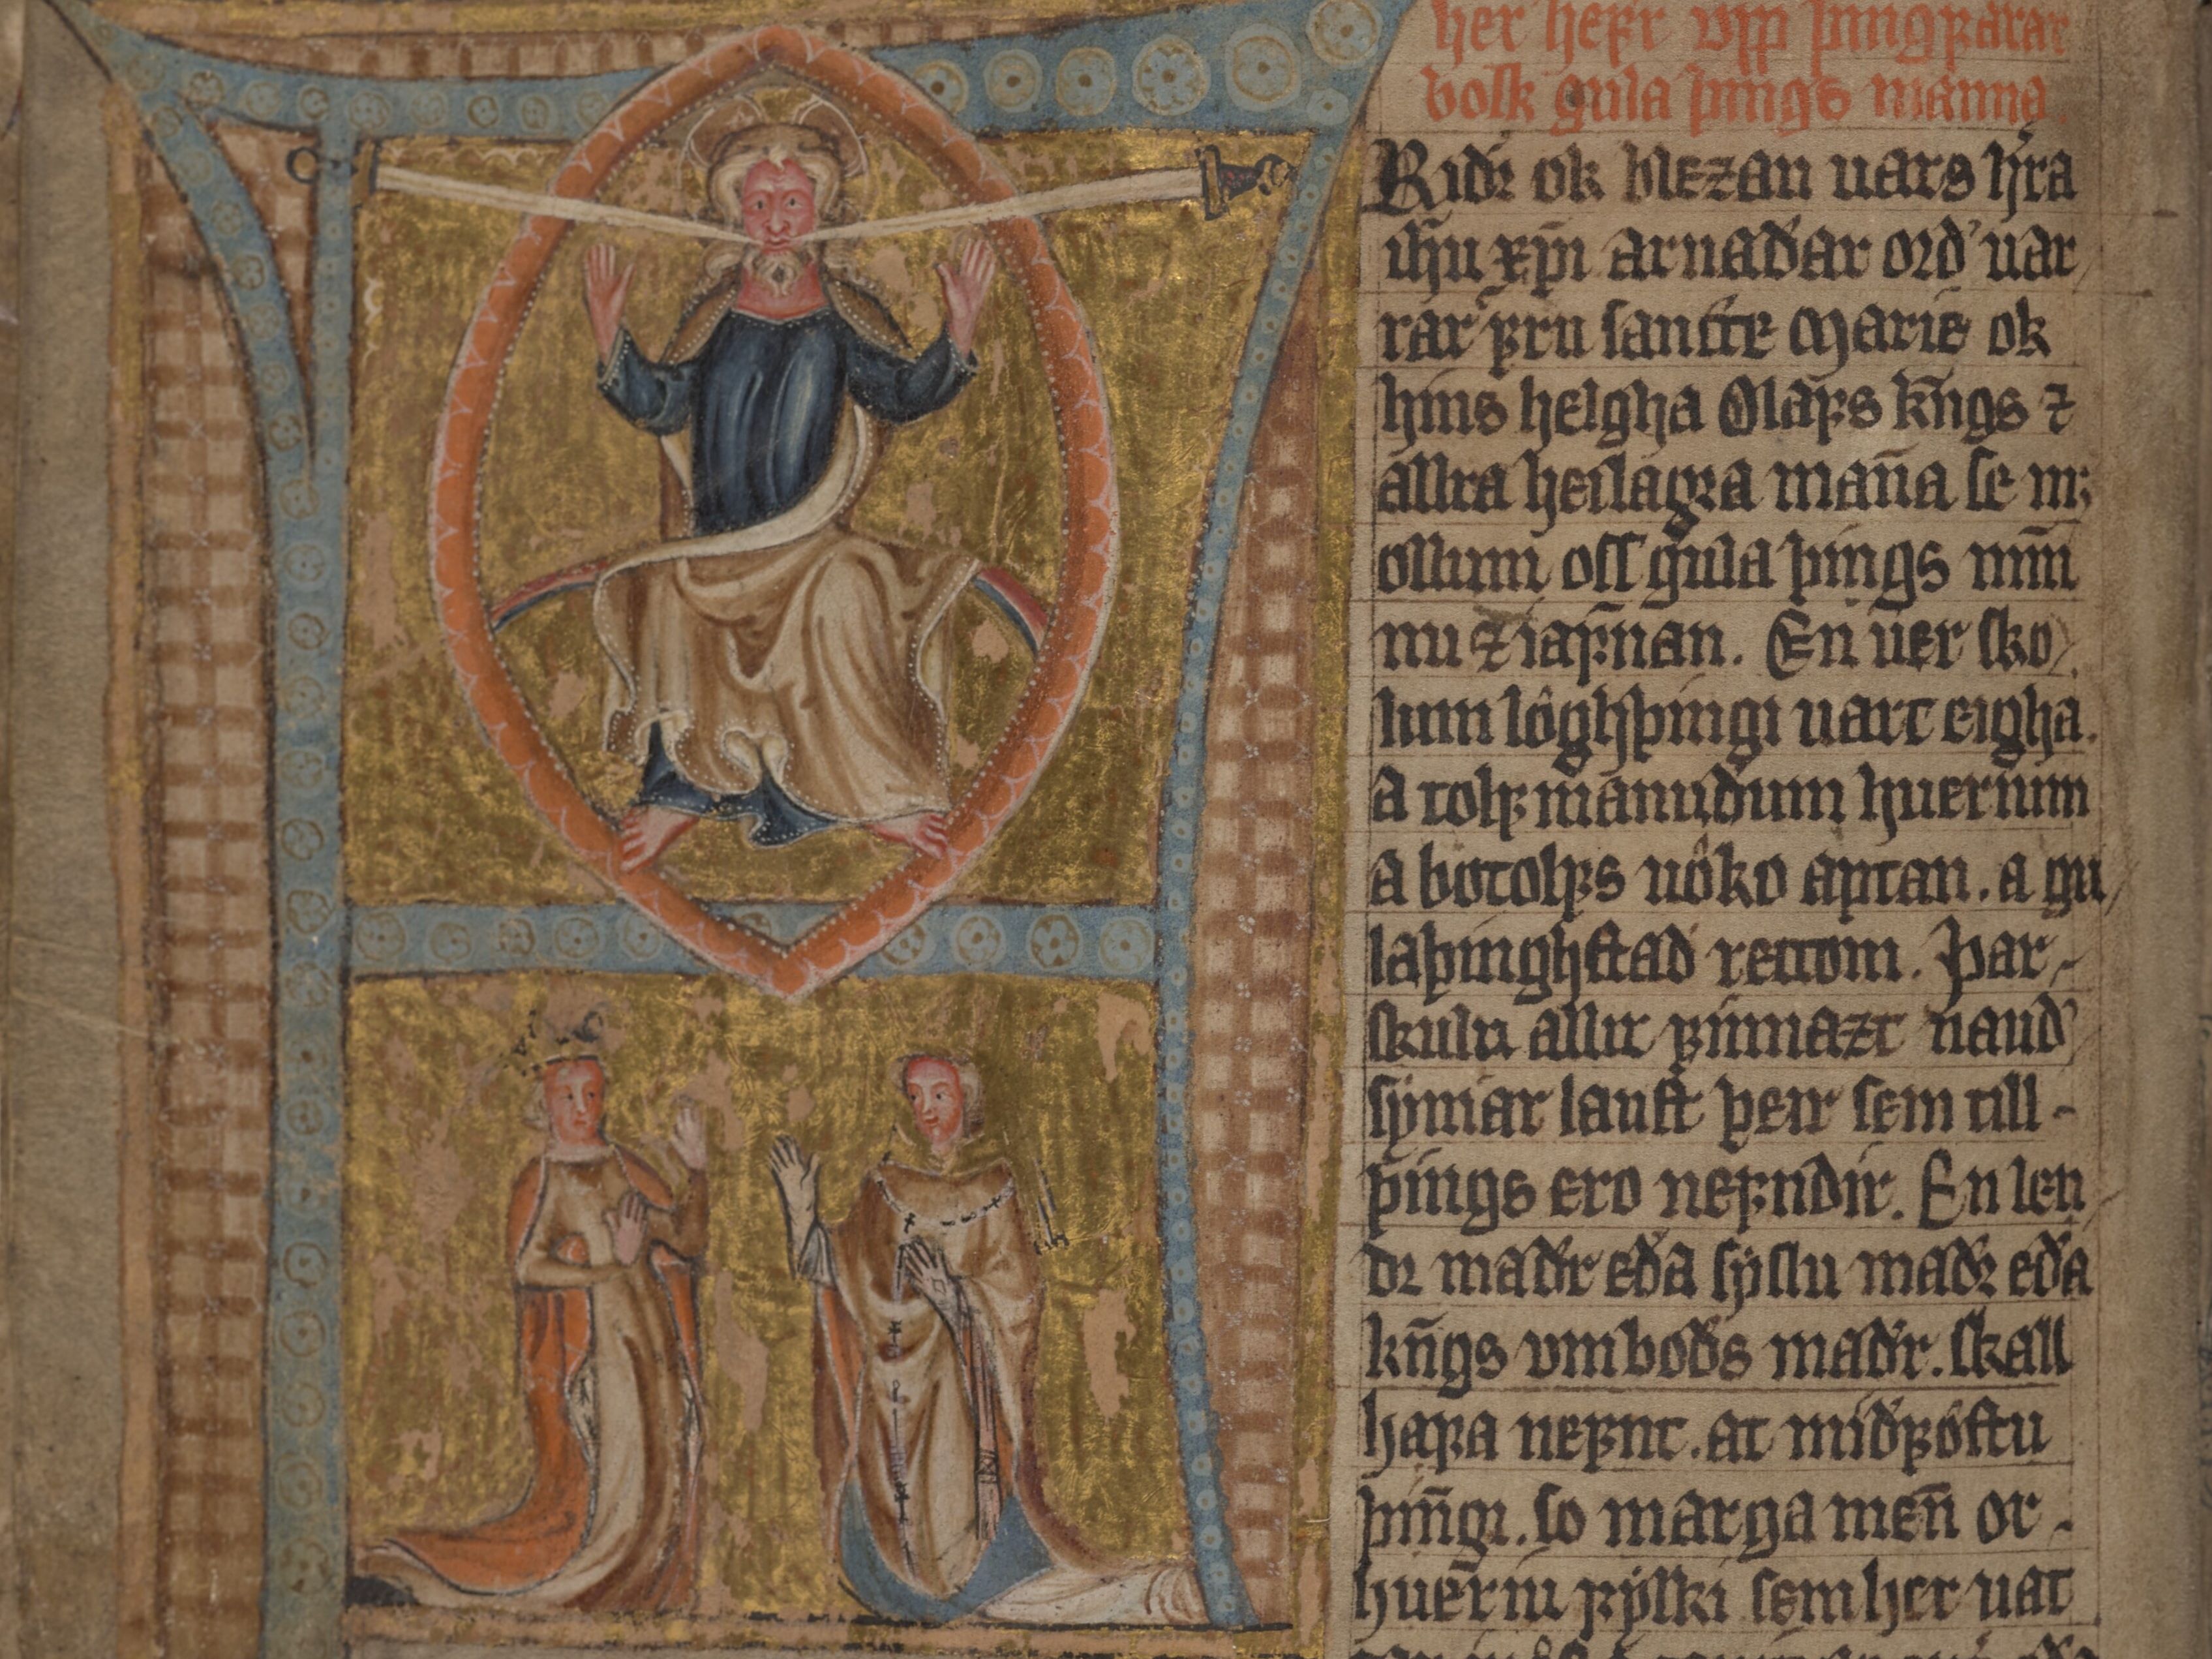 her hefr vpp þingfarar
bolk gula þings manna.
Ridr ok blezan uars h̅ra
ih̅u xp̅i arnadar ord uar
rar fru sancte Marie ok
hins helgha Olafs kn̅gs ⁊
allra heilagra man̅a se m;
ollum oss gula þings mm̅
nu ⁊ iafnan. En uer sko
lum lôghþingi uart eigha.
A tolf manudum huerium
a botolfs uôko aptan. a gu
laþinghstad rettom. Þar
skulu allir finnazt naud
syniar laust þeir sem till
þings ero nefndir. En len
dr madr eda syslu madr eda
kn̅gs vmbods madr. skall
hafa nefnt. at midfôstu
þin̅gi. so marga men̅ or
hueriu fylki sem her uat